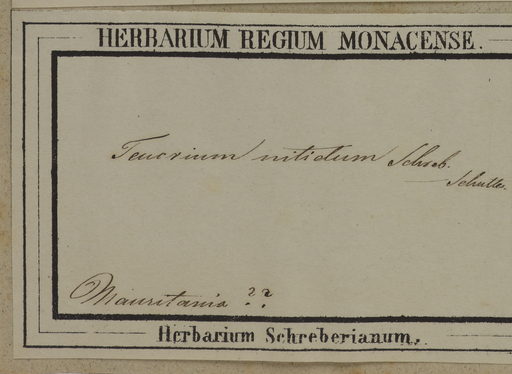 HERBARIUM REGIUM MONACENSE.
Teucrium nitidum Schreb.
Mauritania ??
Herbarium Schreberianum.